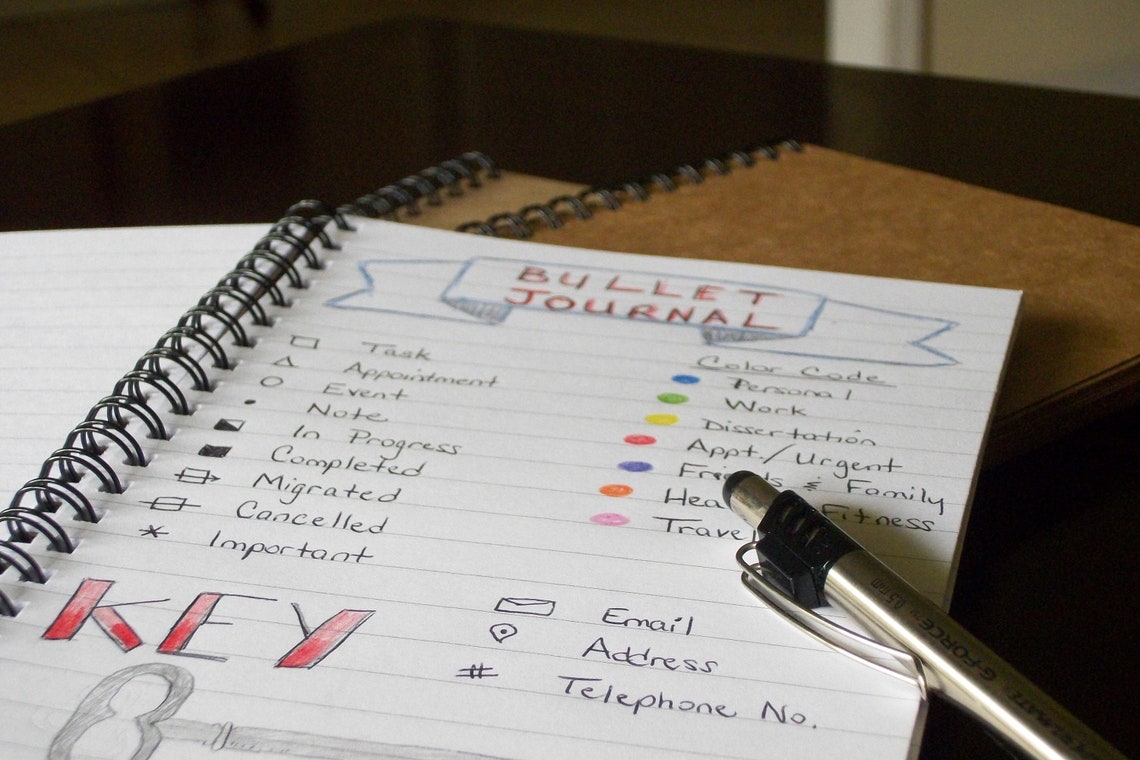 BULLET
JOURNAL
Task
Appointment
Event
Note
In Progress
Completed
Migrated
Cancelled
* Important
Color Code
Personal
Work
Dissertation
Appt./Urgent
Friends & Family
Fitness
Travel
KEY
Email
Address
# Telephone No.
G-FORCE 0.5mm